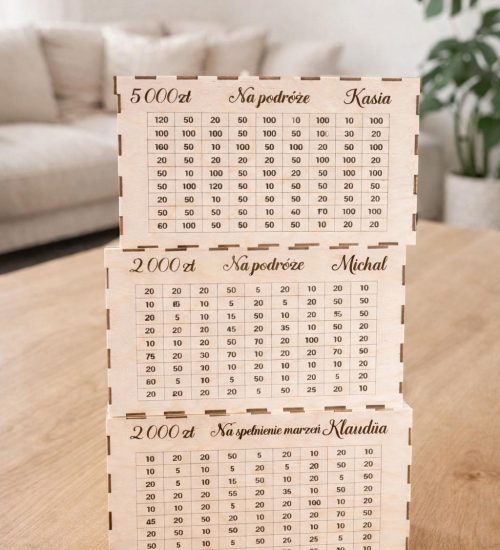 5 000 zł Na podróże Kasia
120 50 20 50 100 10 100 10 100
100 100 50 100 100 50 30 20
100 50 10 100 50 100 20 50 50
20 50 20 20 20 50 100 100 20
50 10 100 50 100 20 50 50 100
50 100 120 50 10 50 50 20 50
20 50 10 50 50 50 50 20 50
50 50 50 50 10 60 50 100 100
60 100 50 50 50 50 50 100 100
2 000 zł Na podróże Michał
20 20 20 50 5 20 10 20 10
10 10 5 20 5 20 50 50
20 5 10 15 50 10 20 50
20 20 20 45 20 35 10 50 20
10 10 20 50 70 20 100 10 20
75 20 30 70 10 20 20 70 50
20 50 30 10 20 20 10 10 20
80 5 10 5 50 50 50 5 10
20 20 20 5 20 50 25 20 10
2 000 zł Na spełnienie marzeń Klaudiia
10 20 20 50 5 20 10 20 10
10 5 10 5 20 5 20 50 50
20 5 10 15 50 10 20 5 50
20 20 20 55 20 35 10 50 20
10 10 20 5 20 20 100 10 20
45 20 50 20 10 20 20 70 20
20 50 10 20 20 20 10 20